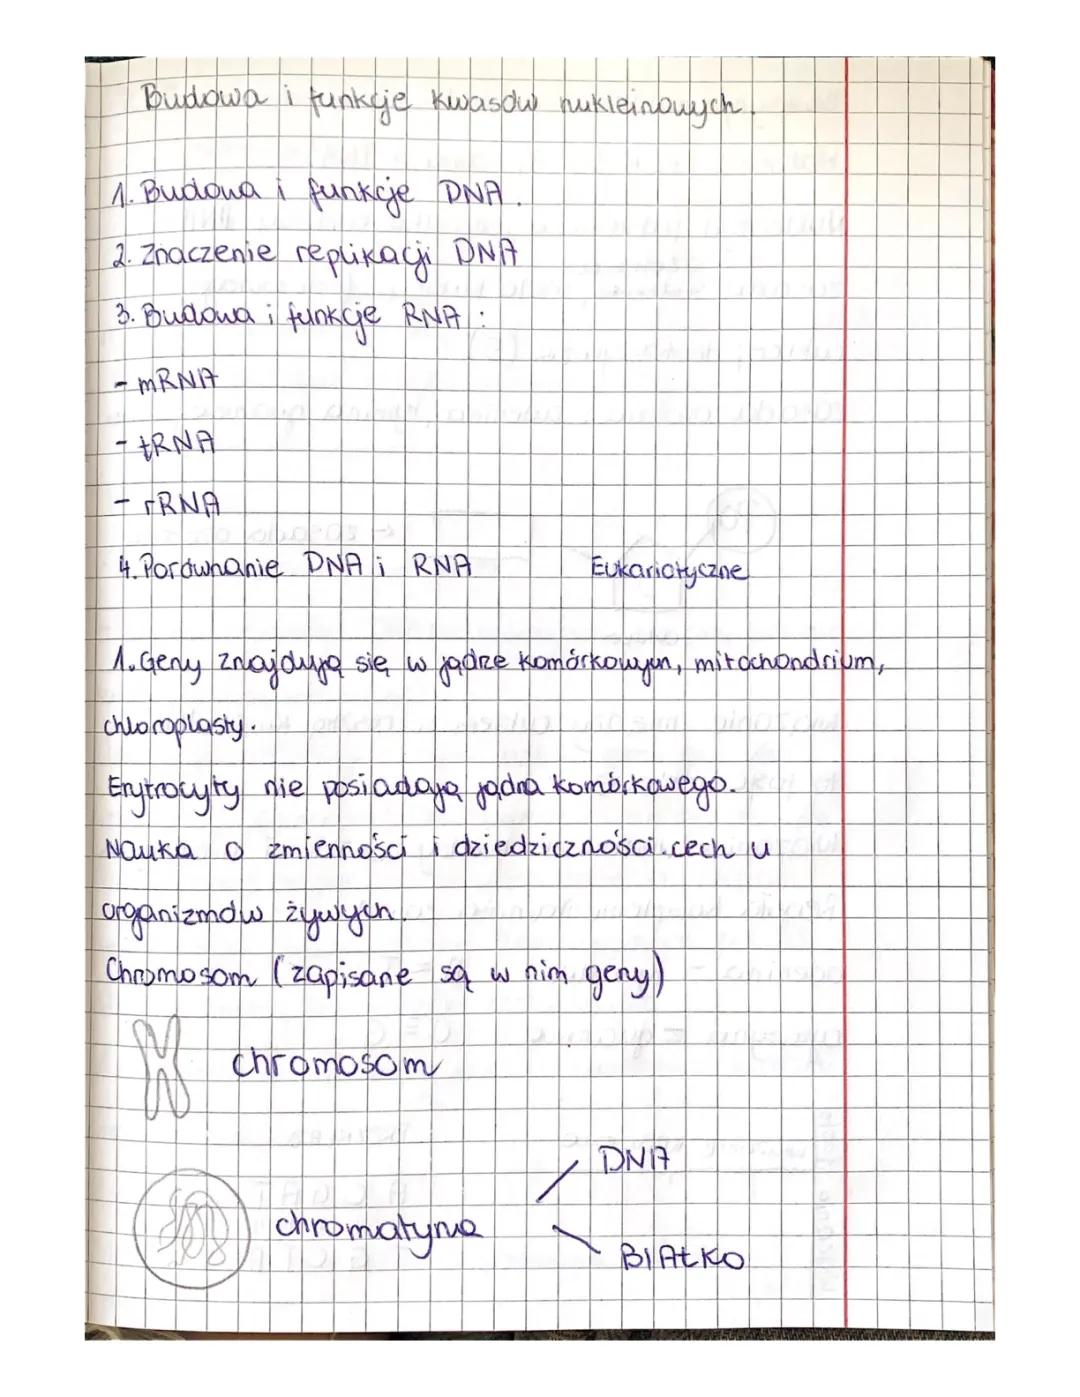 Budowa i funkcje kwasów nukleinowych.
1. Budowa i funkcje DNA.
2. Znaczenie replikacji DNA
3. Budowa i funkcje RNA:
- mRNA
- tRNA
- rRNA
4. Porównanie DNA i RNA
Eukariotyczne
1. Geny znajdują się w jądrze komórkowym, mitochondrium,
chloroplasty.
Erytrocyty nie posiadają jądra komórkowego.
Nauka o zmienności i dziedziczności cech u
organizmów żywych.
Chromosom (zapisane są w nim geny)
chromosom
DNA
chromatyna
BIAŁKO